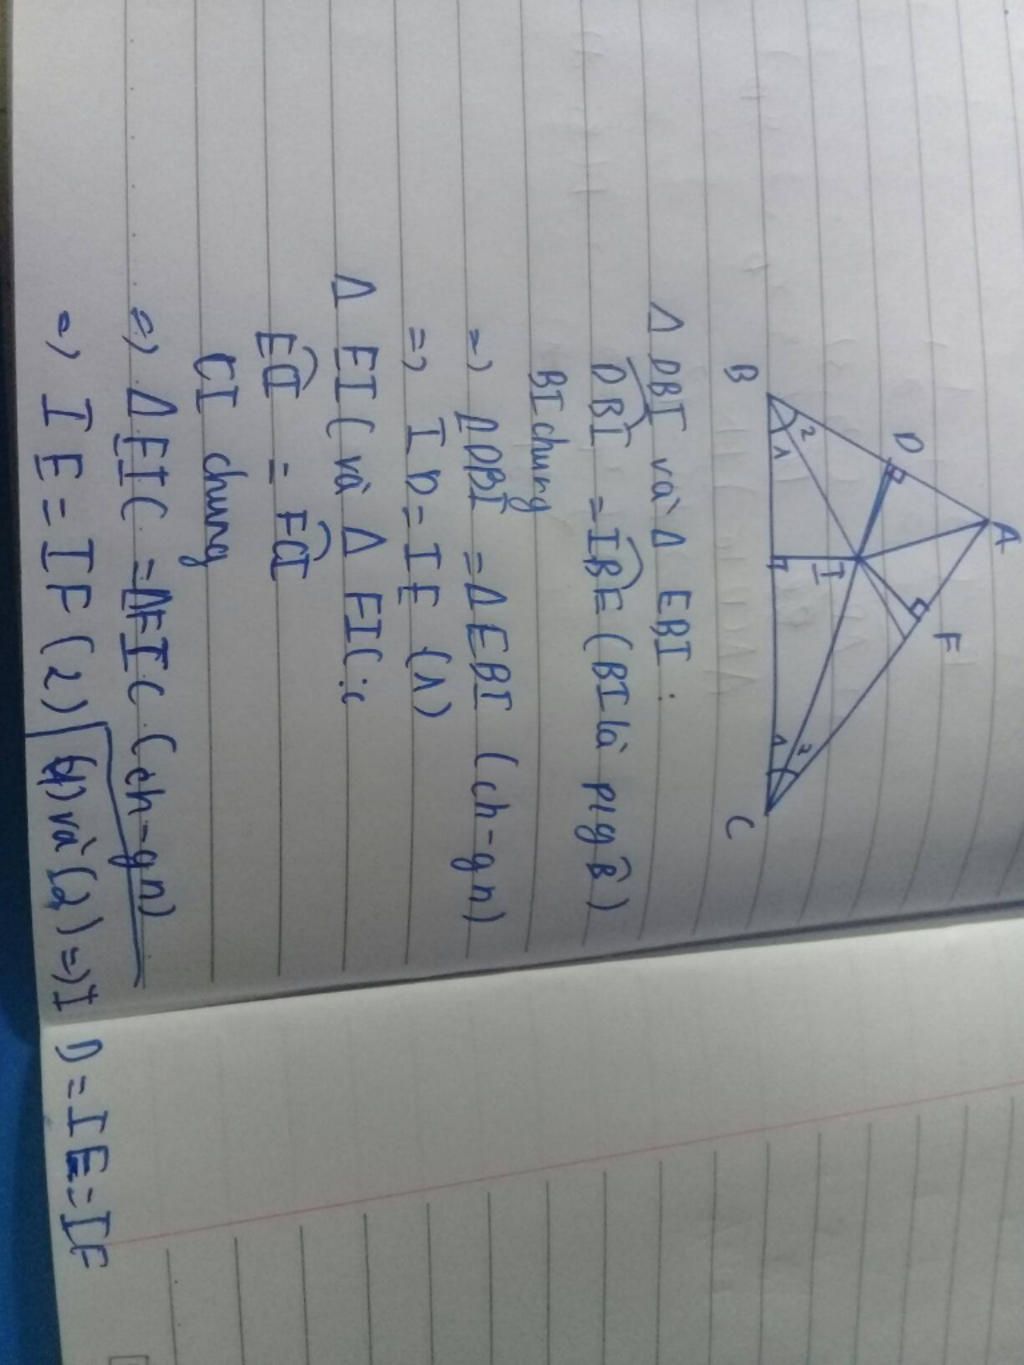 A
D
F
I
B
2
1
1
2
C
Δ DBI và Δ EBI :
DBI = IBE ( BI là plg B )
BI chung
=> ΔDBI = Δ EBI ( ch - gn )
=> ID = IE (1)
Δ EIC và Δ FIC :
ECI = FCI
CI chung
=> Δ EIC = ΔFIC ( ch - gn )
=> IE = IF (2) (1) và (2) => ID = IE = IF